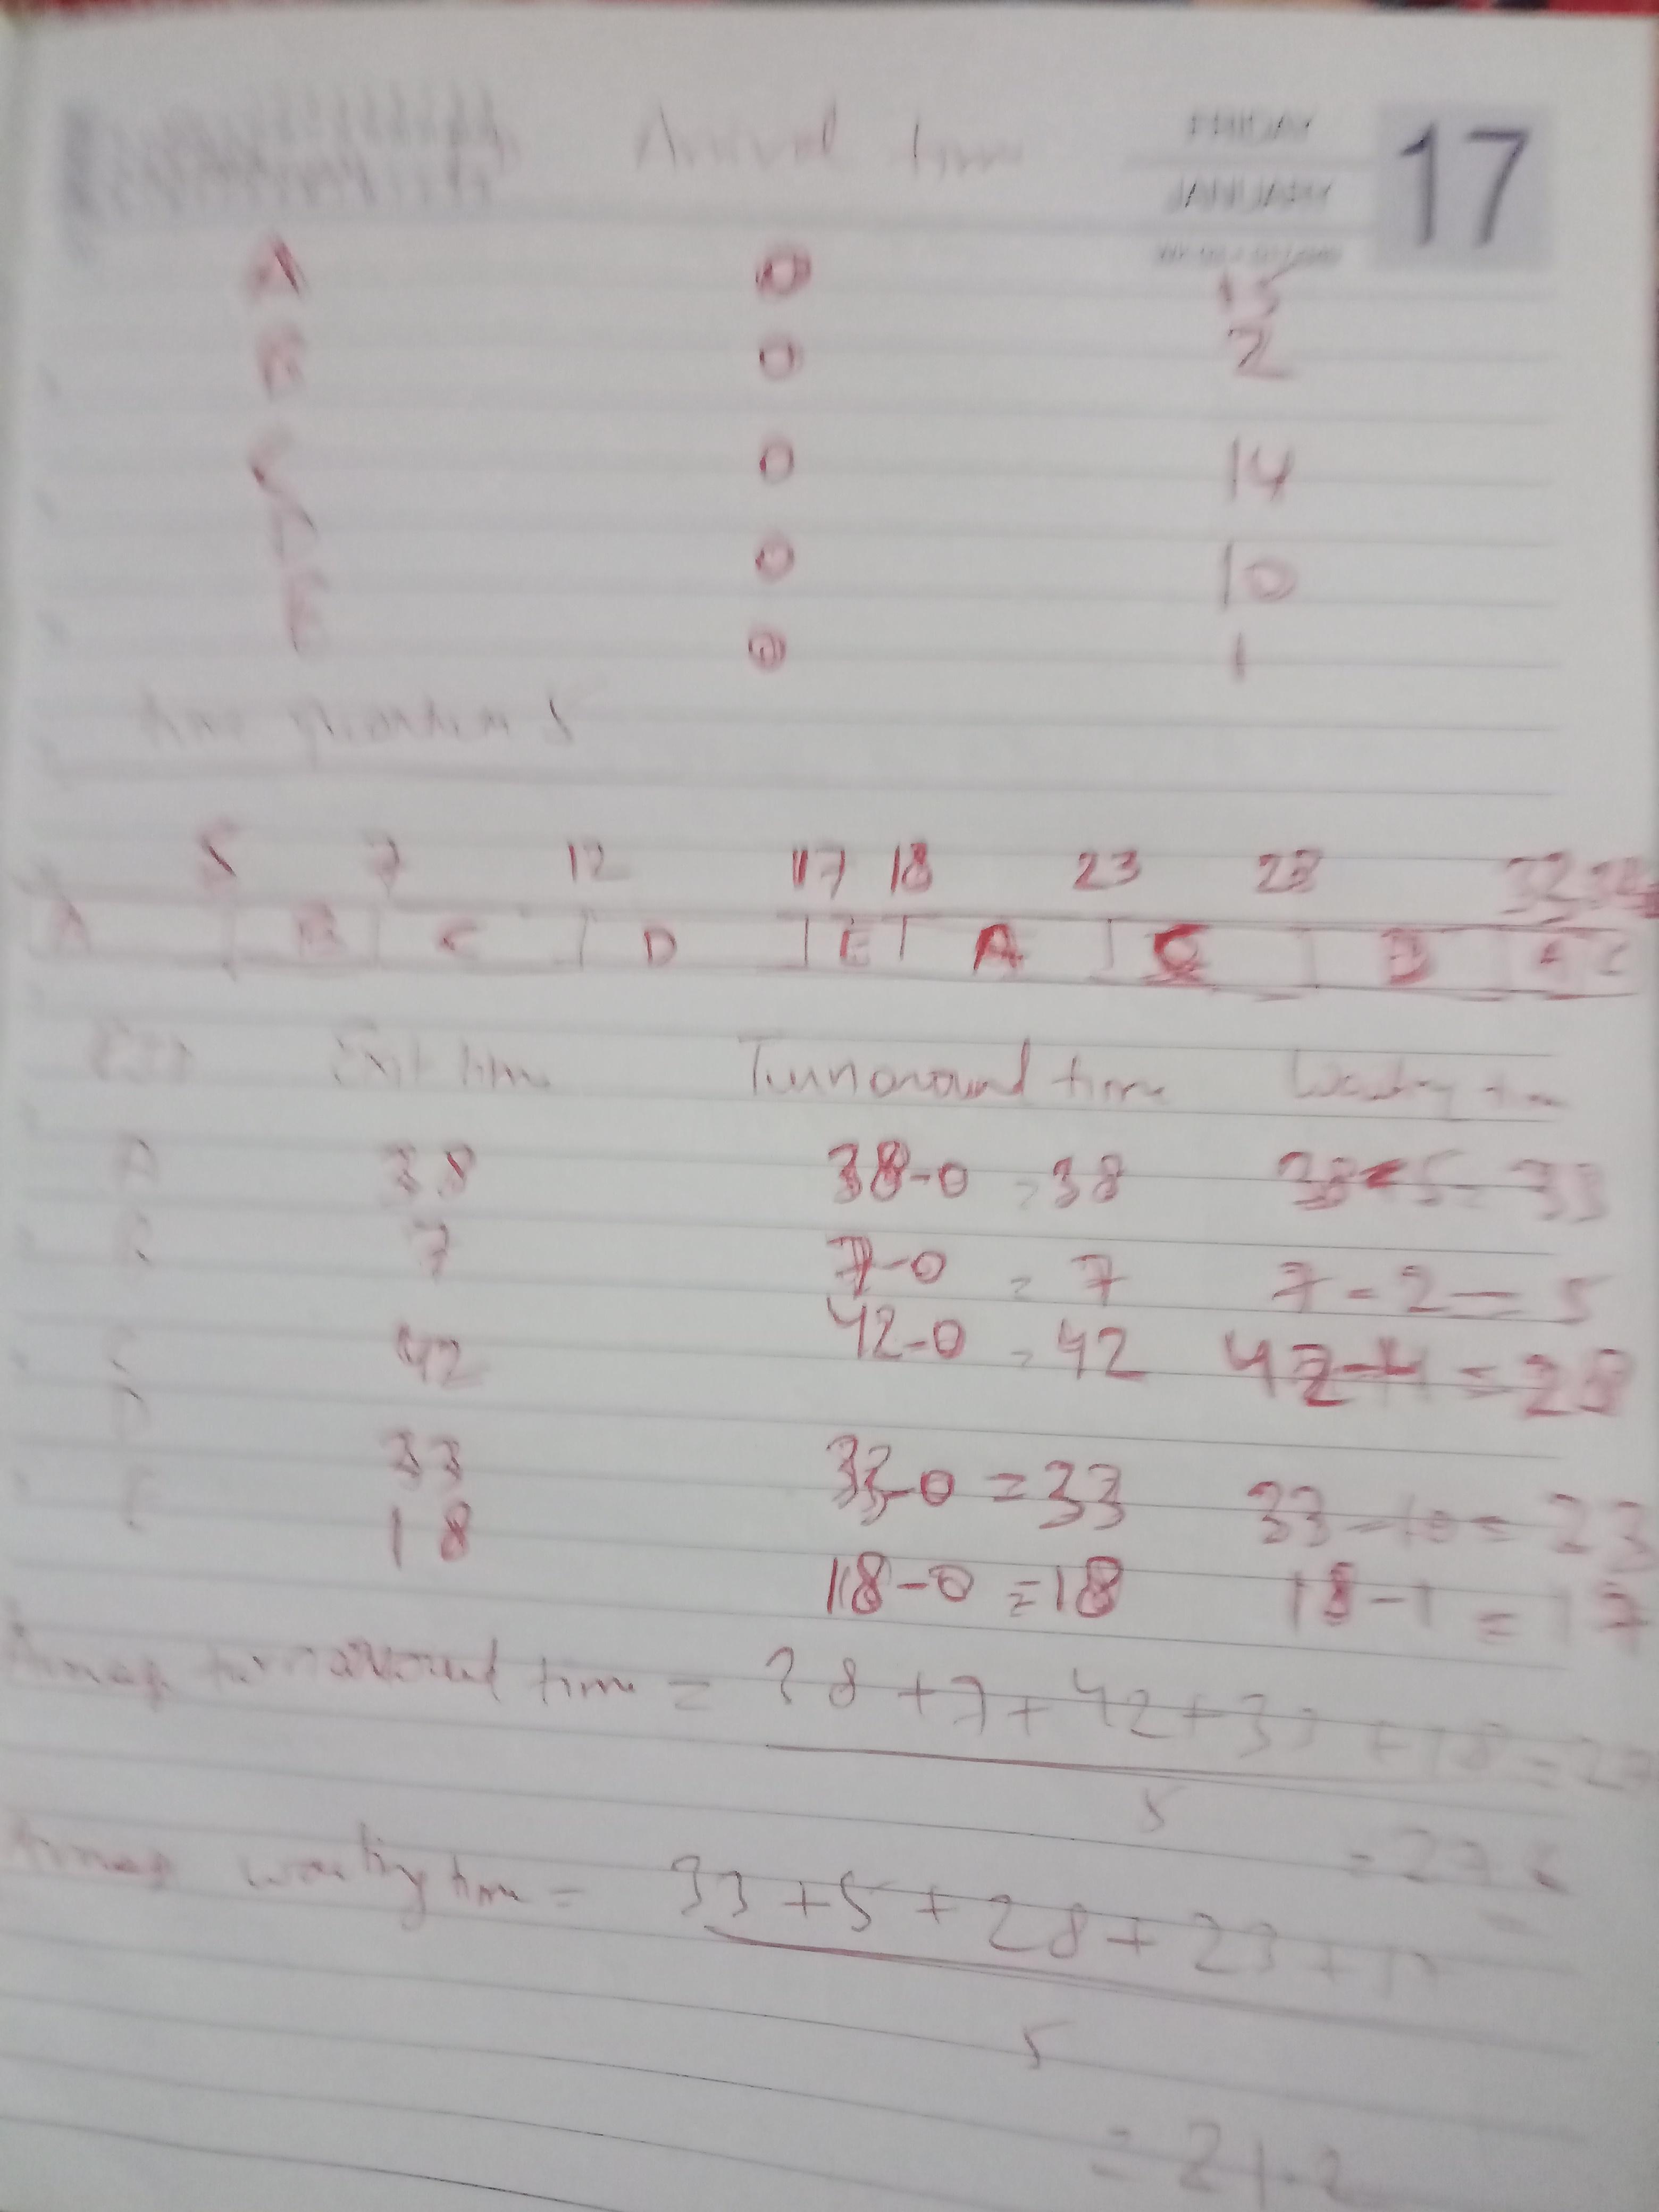 Arrival time
FRIDAY
JANUARY
17
A 0 15
B 0 2
C 0 14
D 0 10
E 0 1
time quantum 5
5 7 12 17 18 23 28 33
A B C D E A C D A C
Exit time Turnaround time Waiting
A 38 38-0 = 38 = 33
B 7 7-0 = 7 7-2=5
C 42 42-0 = 42 = 28
D 33 33-0 = 33 33-10= 23
E 18 18-0 =18 18-1 = 17
turnaround time = 38 +7+42+33 +18
5
waiting time = 33 +5 + 28 + 23 +
5
= 21.2